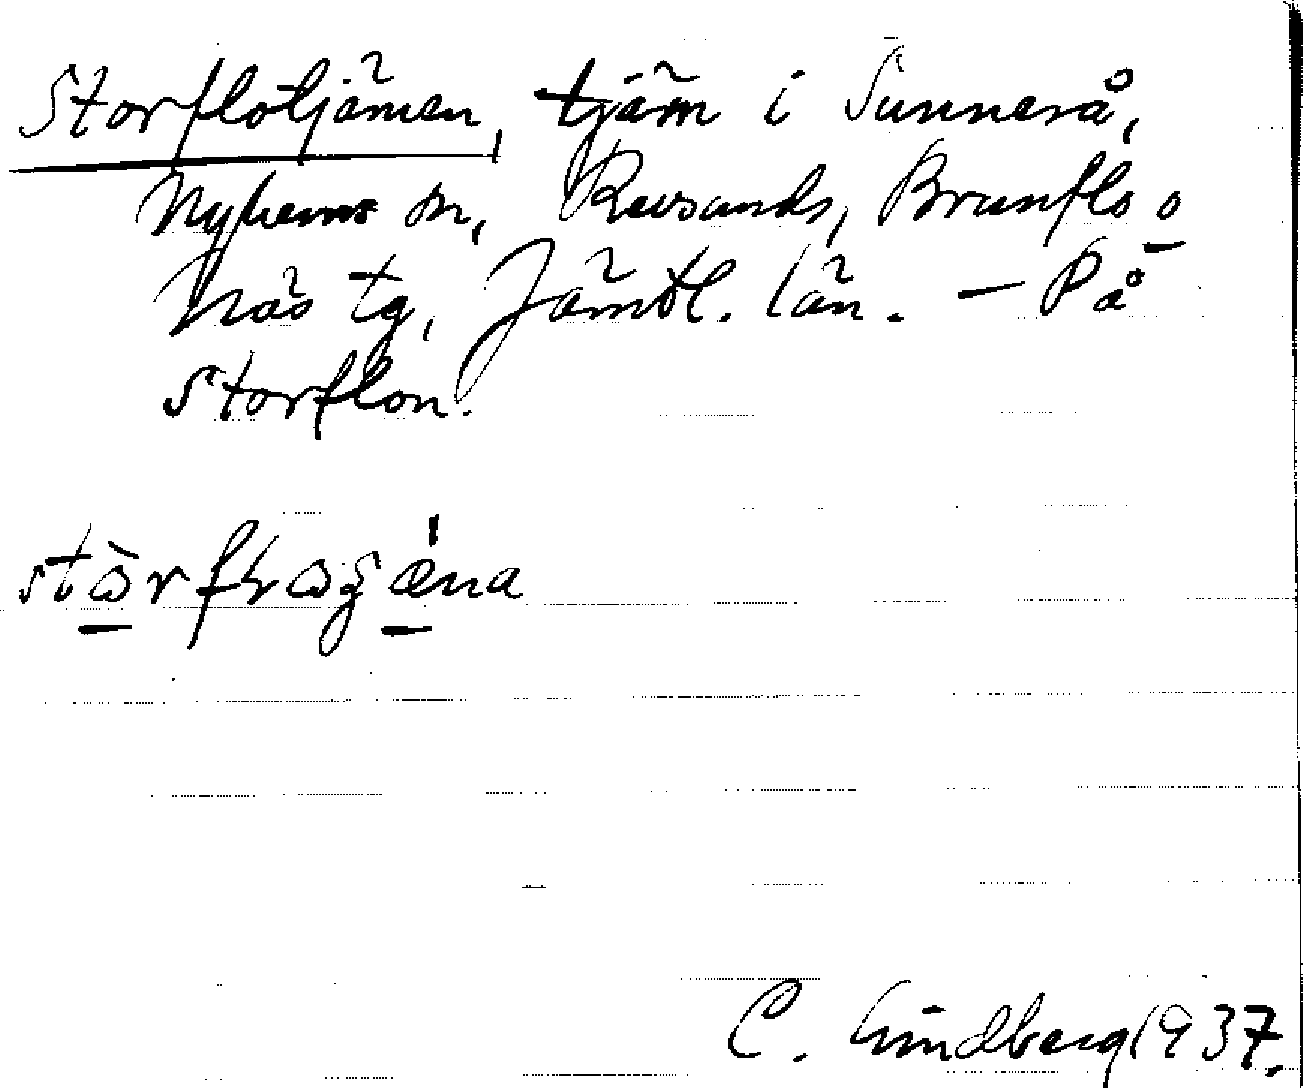 Storflotjärnen, tjärn i Sunnerå,
Nyhems sn, Revsunds, Brunflo o
Näs tg, Jämtl. län. – På
Storflon.
C. Lindberg 1937.